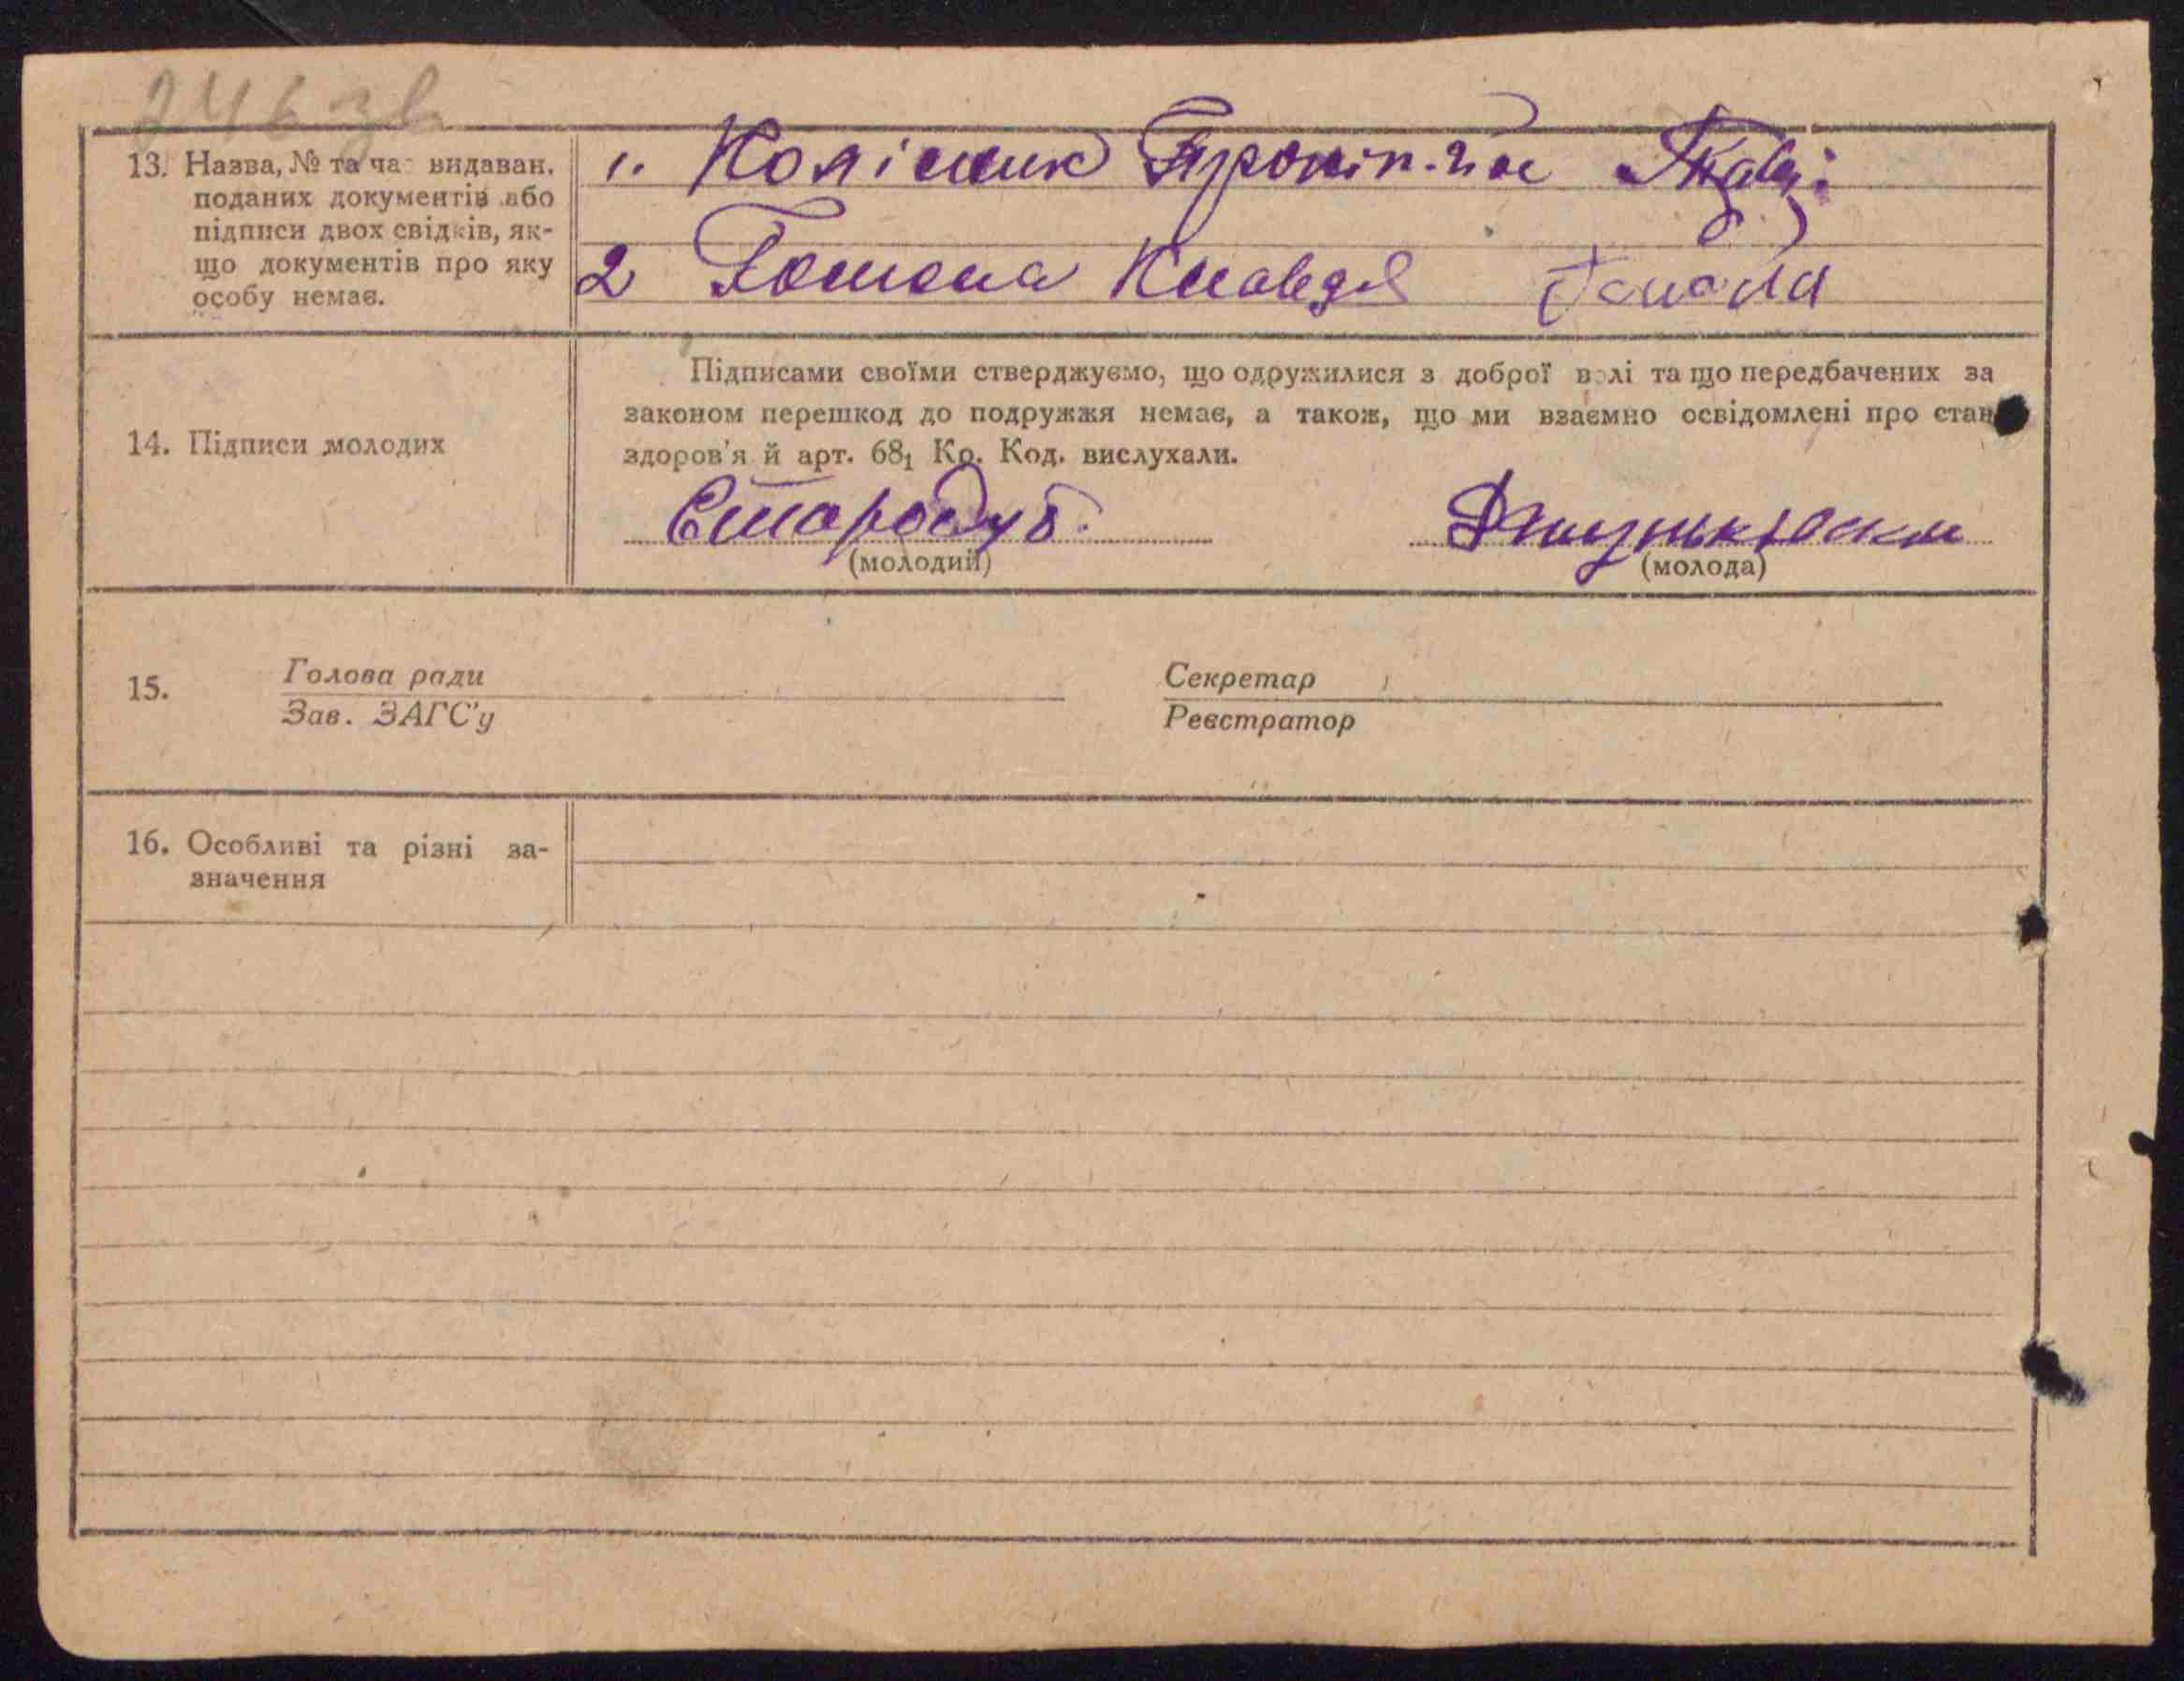 246 зв
13. Назва, № та час видаван. поданих документів або підписи двох свідків, якщо документів про яку особу немає.
1. Колісник
2 Гомона Клавдя Гомона
Підписами своїми стверджуємо, що одружилися з доброї волі та що передбачених за
законом перешкод до подружжя немає, а також, що ми взаємно освідомлені про стан
здоров'я й арт. 68₁ Кр. Код. вислухали.
14. Підписи молодих
Стародуб
(молодий) (молода)
15. Голова ради Секретар
Зав. ЗАГС'у Реєстратор
16. Особливі та різні за-
значення